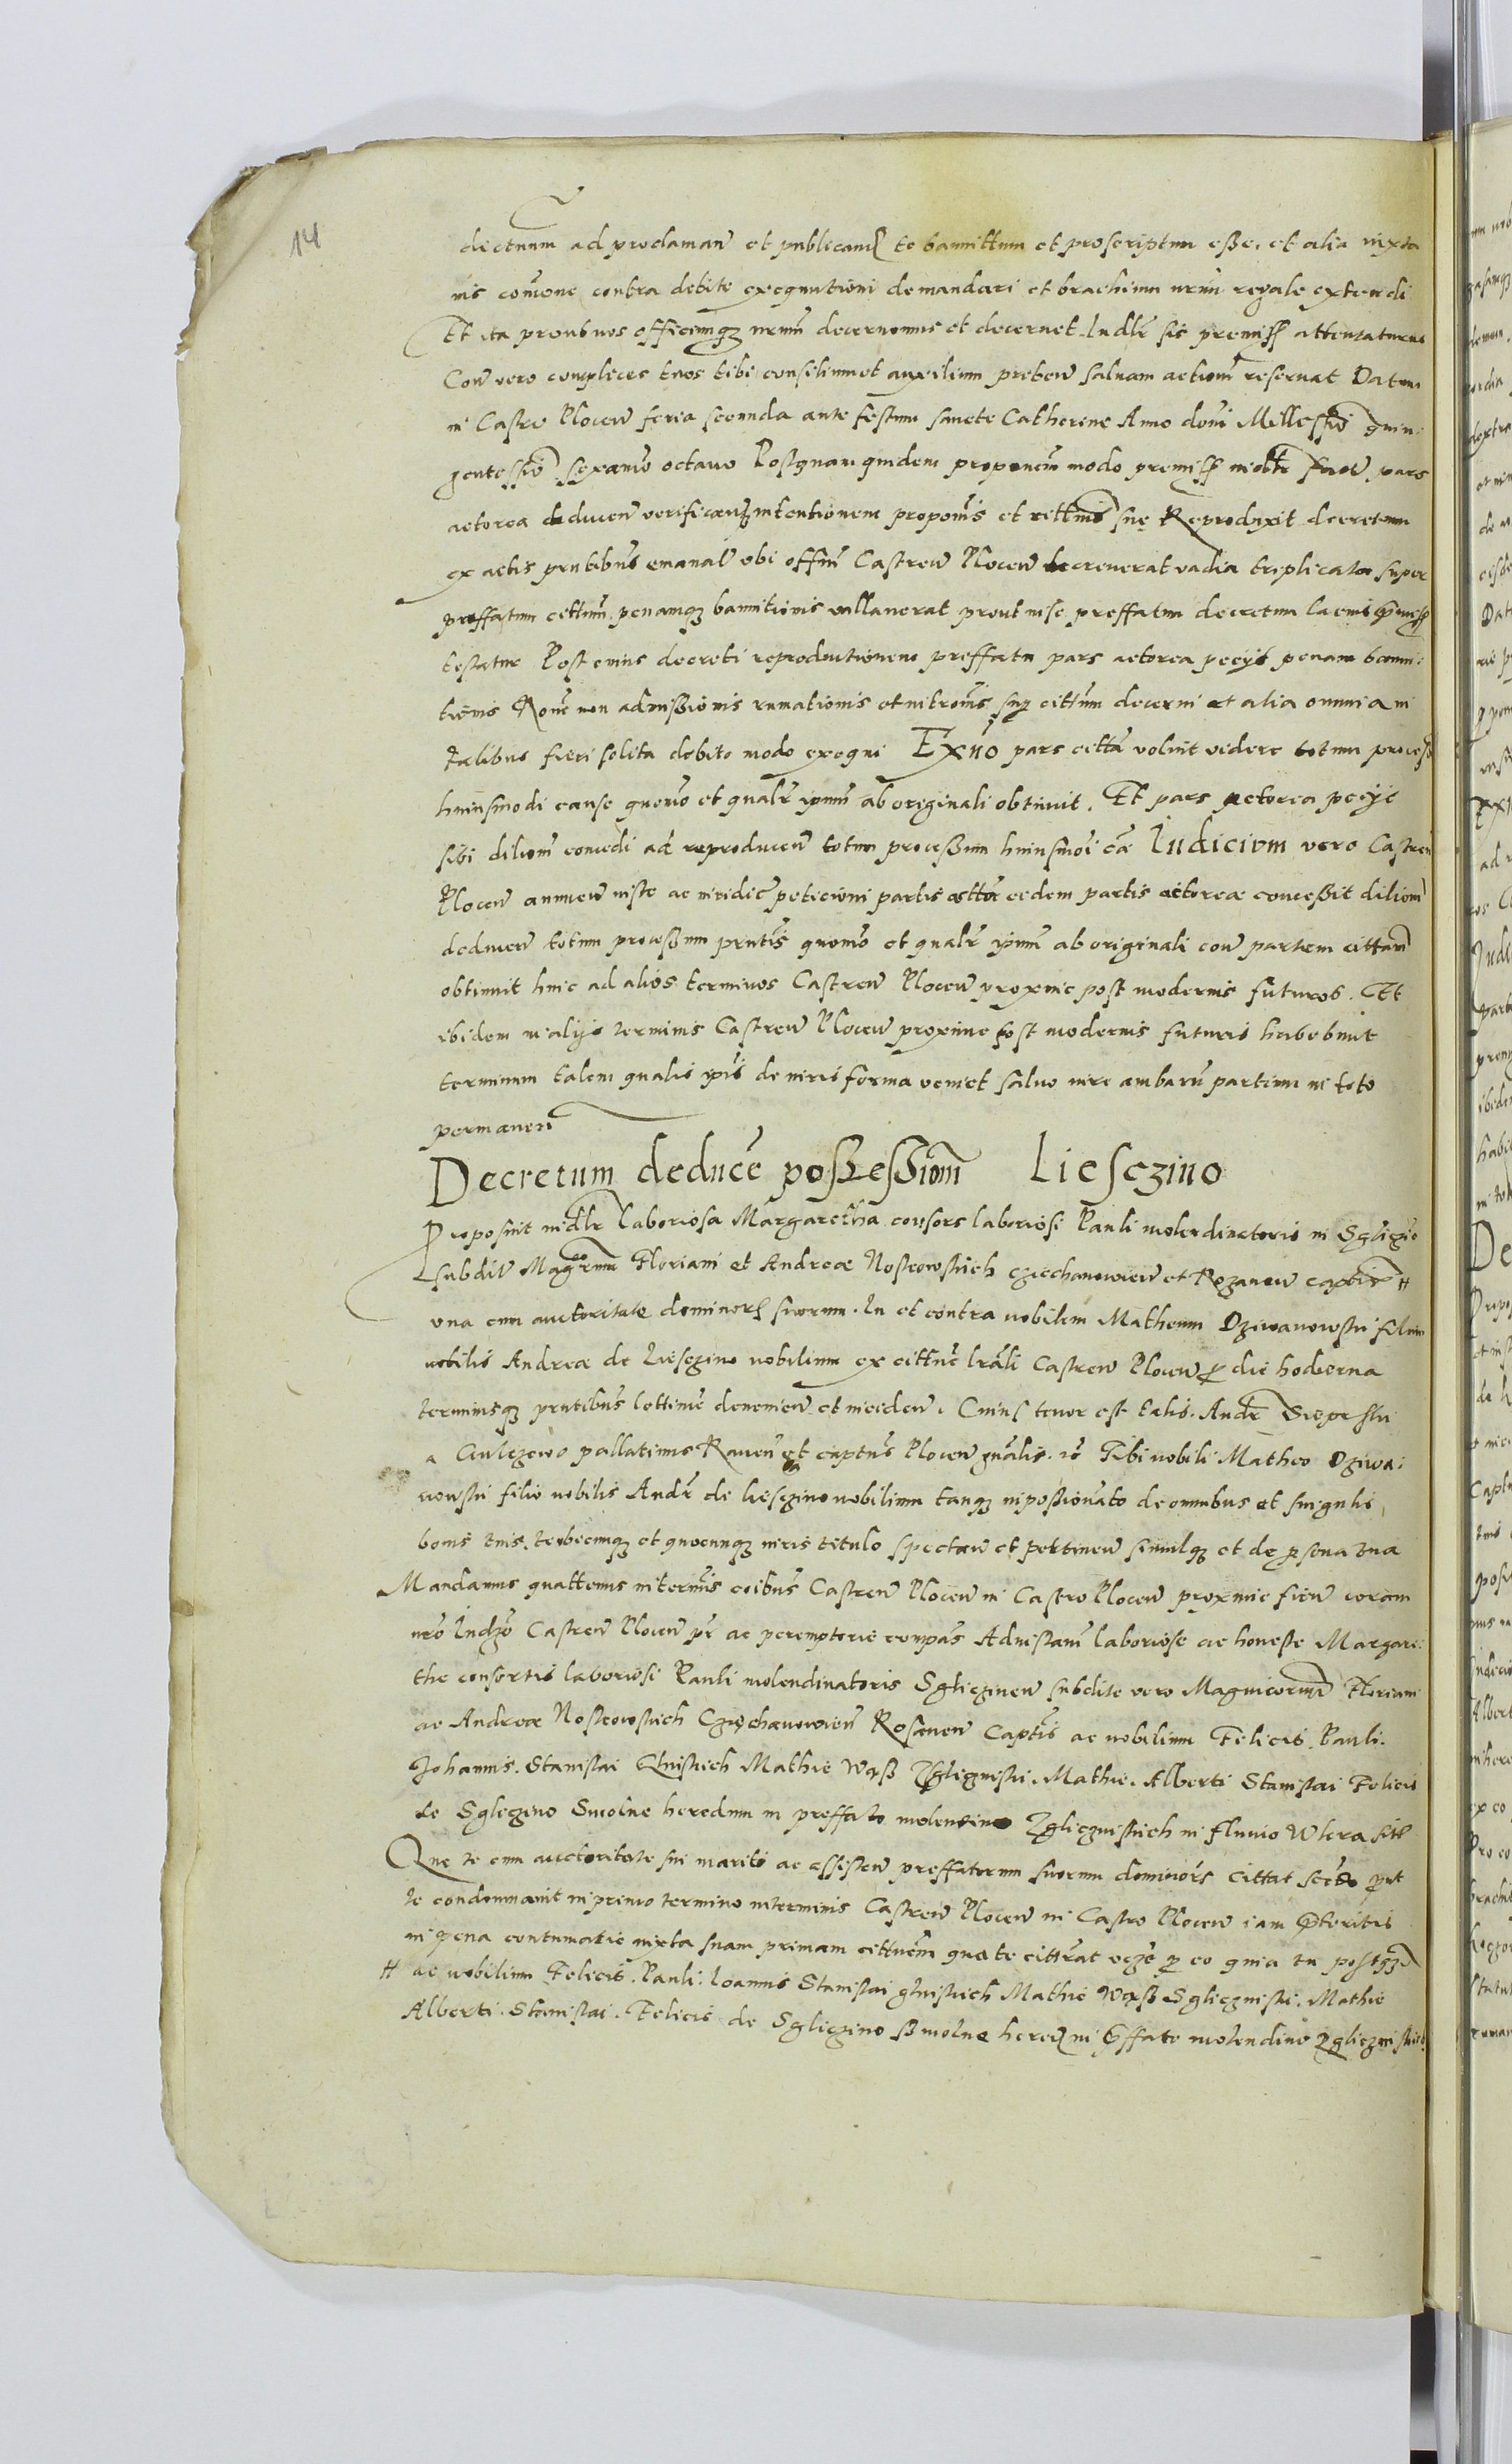 14
dictuum ad proclamañ et publicanđ te bannittum et proscriptum esse, et alia iuxta
nis comone contra debite exequutioni demandari et brachium nrum regale extendi
Et ita prout nos officiumqz nrum decernimus et decernet Indlr sis premiss attentaturus
Con vero complices tuos tibi consilium et auxilium preben salvam actionem reservat Datum
in Castro Plocen feria secunda ante festum sancte Catherine Anno domi Millessimo quin:
gentessimo sexamo octavo Postquam quidem proponem modo premiss facte pars
actorea deducen verificanđ intentionem propomis et cittmis sue Reproduxit decretum
ex actis pntibus emanat ubi offim Castren Plocen decreverat vadia triplicata super
preffatum cittum penamqz bannitionis vallaverat prout in se preffatum decretum
testatur Post cuius decreti reproductionem preffata pars actorea peciit penam banni:
tionis Rone non admissionis rumationis et sup cittum decerni et alia omnia in
talibus fieri solita debito modo exequi Exno pars citta voluit videre totum process
huiusmodi cause quomo et qualr ipum ab originali obtinuit. Et pars actorea peciit
sibi diliom concedi ad reproducen totum processum huiusmoi cae Iudicium vero Castren
Plocen annuen iuste ac iuridic peticioni partis acttor eidem partis actoreae concessit diliom
deducen totum processum pntis quomo et qualr ipum ab originali con partem cittam
obtinuit hinc ad alios terminos Castren Plocen proxime post modernis futuros. Et
ibidem in aliis terminis Castren Plocen proxime post modernis futuris habebunt
terminum talem qualis ipis de iuris forma veniet salvo iure ambaru partium in toto
permanen
Decretum deduce possessiom Liesczino
Proposuit indlr laboriosa Margaretha consors laboriosi Pauli molendinatoris in Sgliczino
subdit Magcorum Floriani et Andreae Noskowskich Cziechanovien et Rozanen captis #
una cum auctoritate dominorz suorum. In et contra nobilem Matheum Dziwanowski filium
nobilis Andreae de Liesczino nobilium ex cittne lrali Castren Plocen p die hodierna
terminisqz pntibus lettime devenien et inciden. Cuius tenor est talis. Andr Sieprski
a Gulczewo pallatinus Raven et captus Plocen gnalis. Tibi nobili Matheo Dziwa:
nowski filio nobilis Andr de Liesczino nobilium tanqz inpossionato de omnibus et singulis
bonis tuis ubicunqz et quocunqz iuris titulo spectan et pertinen simulqz et de psona tua
Mandamus quattenus in termis coibus Castren Plocen in Castro Plocen proxime fien coram
nro Indzo Castren Plocen pr ac peremptorie compas Ad instam laboriose ac honeste Margare:
the consortis laboriosi Pauli molendinatoris Sgliczinen subdite vero Magnicorum Floriani
ac Andreae Noskowskich Cziechanowien Rosanen Captis ac nobilium Felicis. Pauli.
Johannis. Stanislai Mathie Wąss Zgliczniski. Mathie. Alberti Stanislai Felicis
de Sgliczino Smolne heredum in preffato molendino Zglicziniskich in fluvio Wkra sitt
Que te cum auctoritate sui mariti ac assisten preffatorum suorum dominors cittat secdo put
te condemnavit in primo termino in terminis Castren Plocen in Castro Plocen iam preteritis
in pena contumatie iuxta suam primam cittnem qua te cittrat p eo quia tu postqz
# ac nobilium Felicis. Pauli. Ioannis Stanislai Mathie Wąss Sgliczniski. Mathie
Alberti. Stanislai. Felicis de Sgliczino Smolne hered in preffato molendino Zgliczniskich